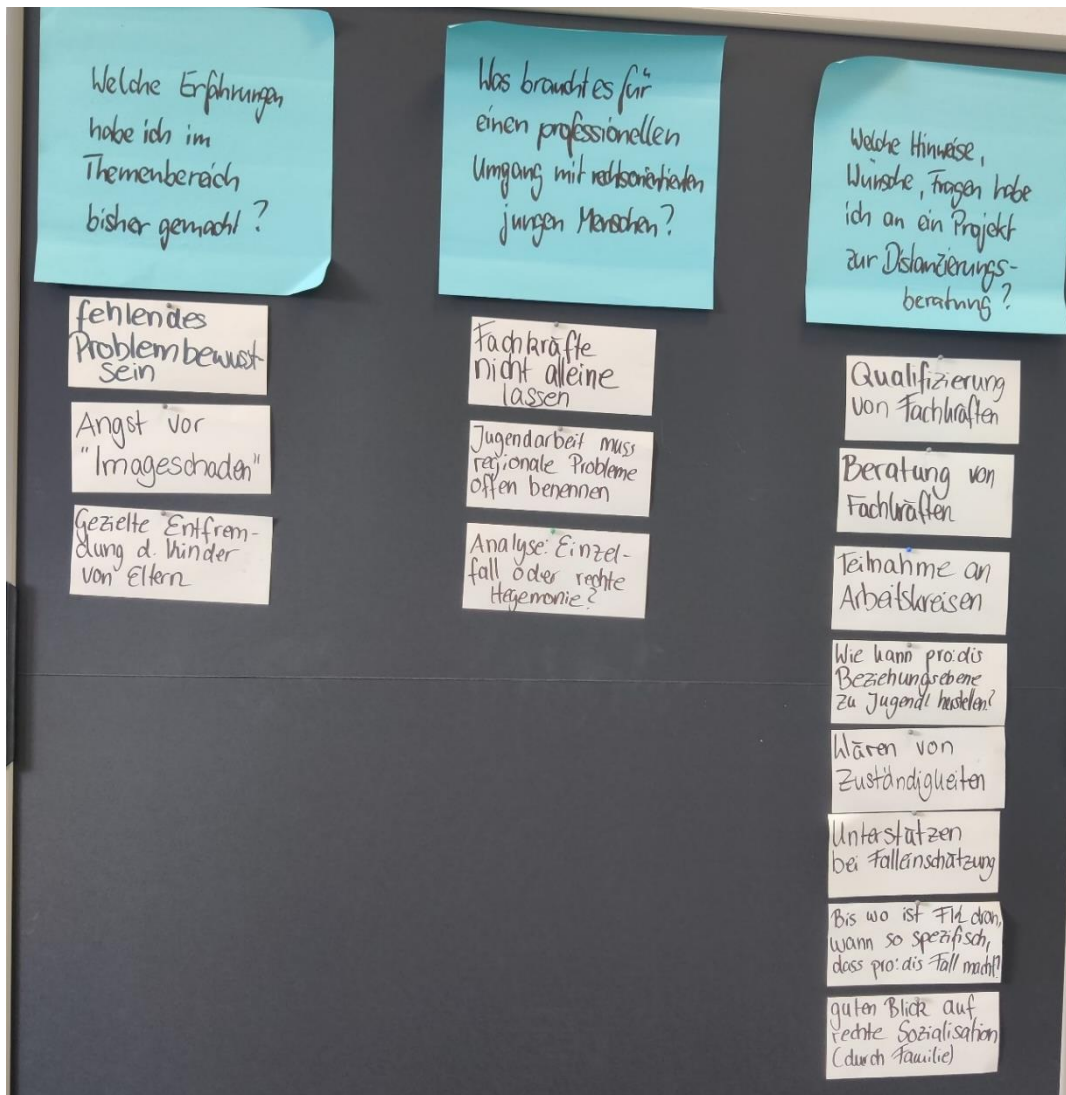 Welche Erfahrungen
habe ich im
Themenbereich
bisher gemacht?
fehlendes
Problembewusst
sein
Angst vor
"Imageschaden"
Gezielte Entfrem-
dung d. Kinder
von Eltern
Was braucht es für
einen professionellen
Umgang mit rechtsorientierten
jungen Menschen?
Fachkräfte
nicht alleine
lassen
Jugendarbeit muss
regionale Probleme
offen benennen
Analyse: Einzel-
fall oder rechte
Hegemonie?
Welche Hinweise,
Wünsche, Fragen habe
ich an ein Projekt
zur Distanzierungs-
beratung?
Qualifizierung
von Fachkräften
Beratung von
Fachkräften
Teilnahme an
Arbeitskreisen
Wie kann pro:dis
Beziehungsebene
zu Jugendl herstellen?
Klären von
Zuständigkeiten
Unterstützen
bei Falleinschätzung
Bis wo ist FK dran,
wann so spezifisch,
dass pro:dis Fall macht?
guten Blick auf
rechte Sozialisation
(durch Familie)